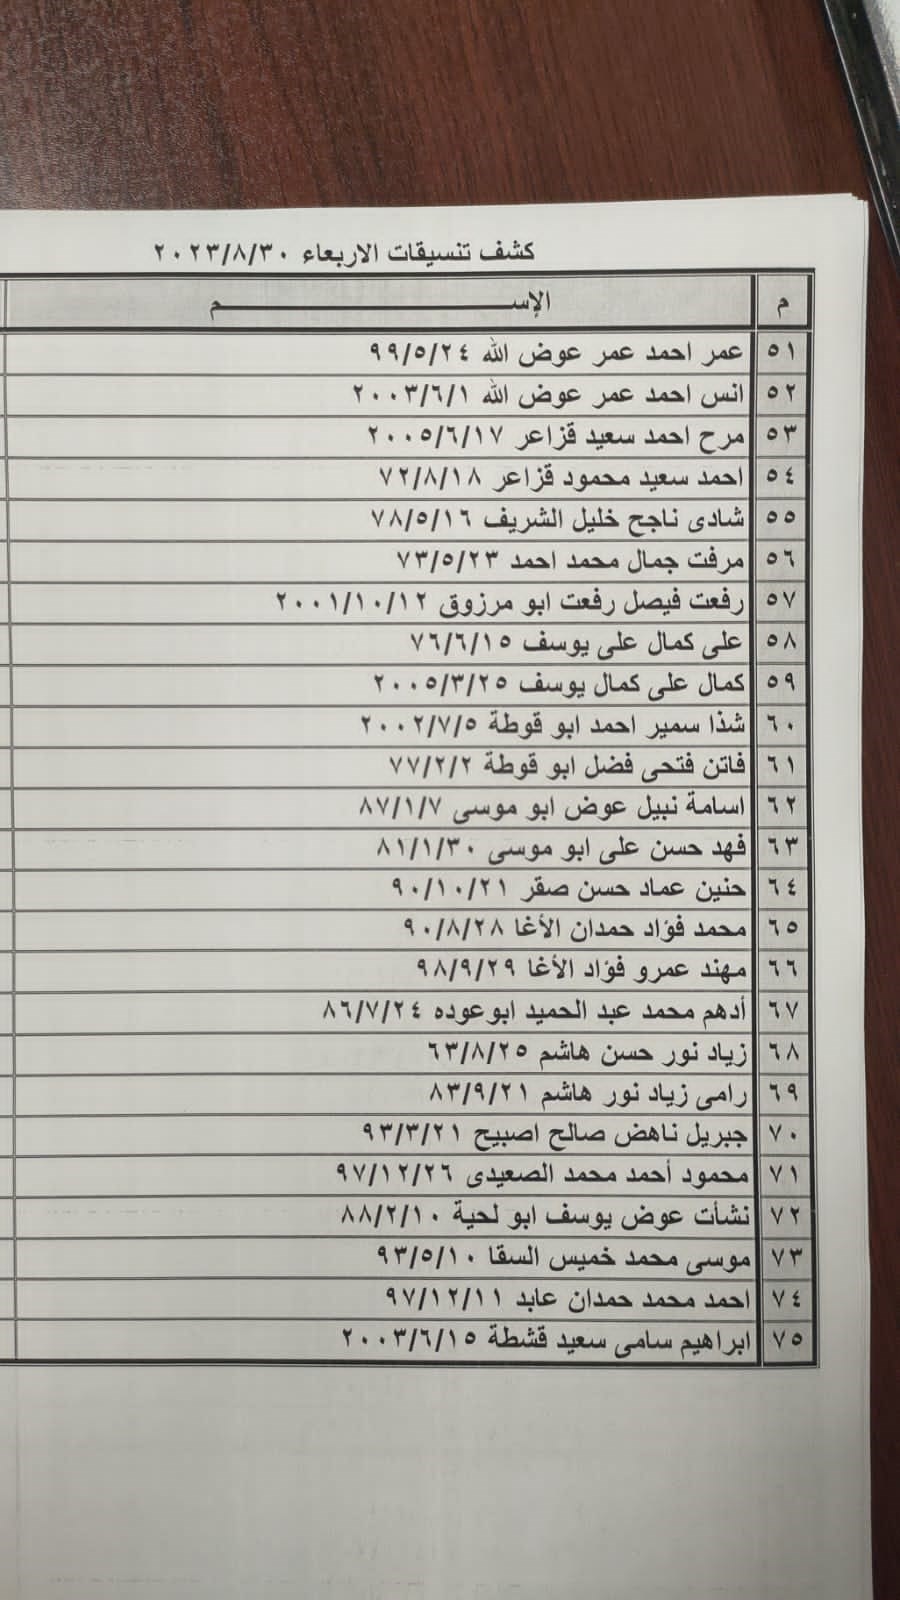 كشف تنسيقات الاربعاء ٢٠٢٣/٨/٣٠
م الإســـــــــــــــــــــــم
٥١ عمر احمد عمر عوض الله ٩٩/٥/٢٤
٥٢ انس احمد عمر عوض الله ٢٠٠٣/٦/١
٥٣ مرح احمد سعيد قزاعر ٢٠٠٥/٦/١٧
٥٤ احمد سعيد محمود قزاعر ٧٢/٨/١٨
٥٥ شادى ناجح خليل الشريف ٧٨/٥/١٦
٥٦ مرفت جمال محمد احمد ٧٣/٥/٢٣
٥٧ رفعت فيصل رفعت ابو مرزوق ٢٠٠١/١٠/١٢
٥٨ على كمال على يوسف ٧٦/٦/١٥
٥٩ كمال على كمال يوسف ٢٠٠٥/٣/٢٥
٦٠ شذا سمير احمد ابو قوطة ٢٠٠٢/٧/٥
٦١ فاتن فتحى فضل ابو قوطة ٧٧/٢/٢
٦٢ اسامة نبيل عوض ابو موسى ٨٧/١/٧
٦٣ فهد حسن على ابو موسى ٨١/١/٣٠
٦٤ حنين عماد حسن صقر ٩٠/١٠/٢١
٦٥ محمد فؤاد حمدان الأغا ٩٠/٨/٢٨
٦٦ مهند عمرو فؤاد الأغا ٩٨/٩/٢٩
٦٧ أدهم محمد عبد الحميد ابوعوده ٨٦/٧/٢٤
٦٨ زياد نور حسن هاشم ٦٣/٨/٢٥
٦٩ رامى زياد نور هاشم ٨٣/٩/٢١
٧٠ جبريل ناهض صالح اصبيح ٩٣/٣/٢١
٧١ محمود أحمد محمد الصعيدى ٩٧/١٢/٢٦
٧٢ نشأت عوض يوسف ابو لحية ٨٨/٢/١٠
٧٣ موسى محمد خميس السقا ٩٣/٥/١٠
٧٤ احمد محمد حمدان عابد ٩٧/١٢/١١
٧٥ ابراهيم سامى سعيد قشطة ٢٠٠٣/٦/١٥